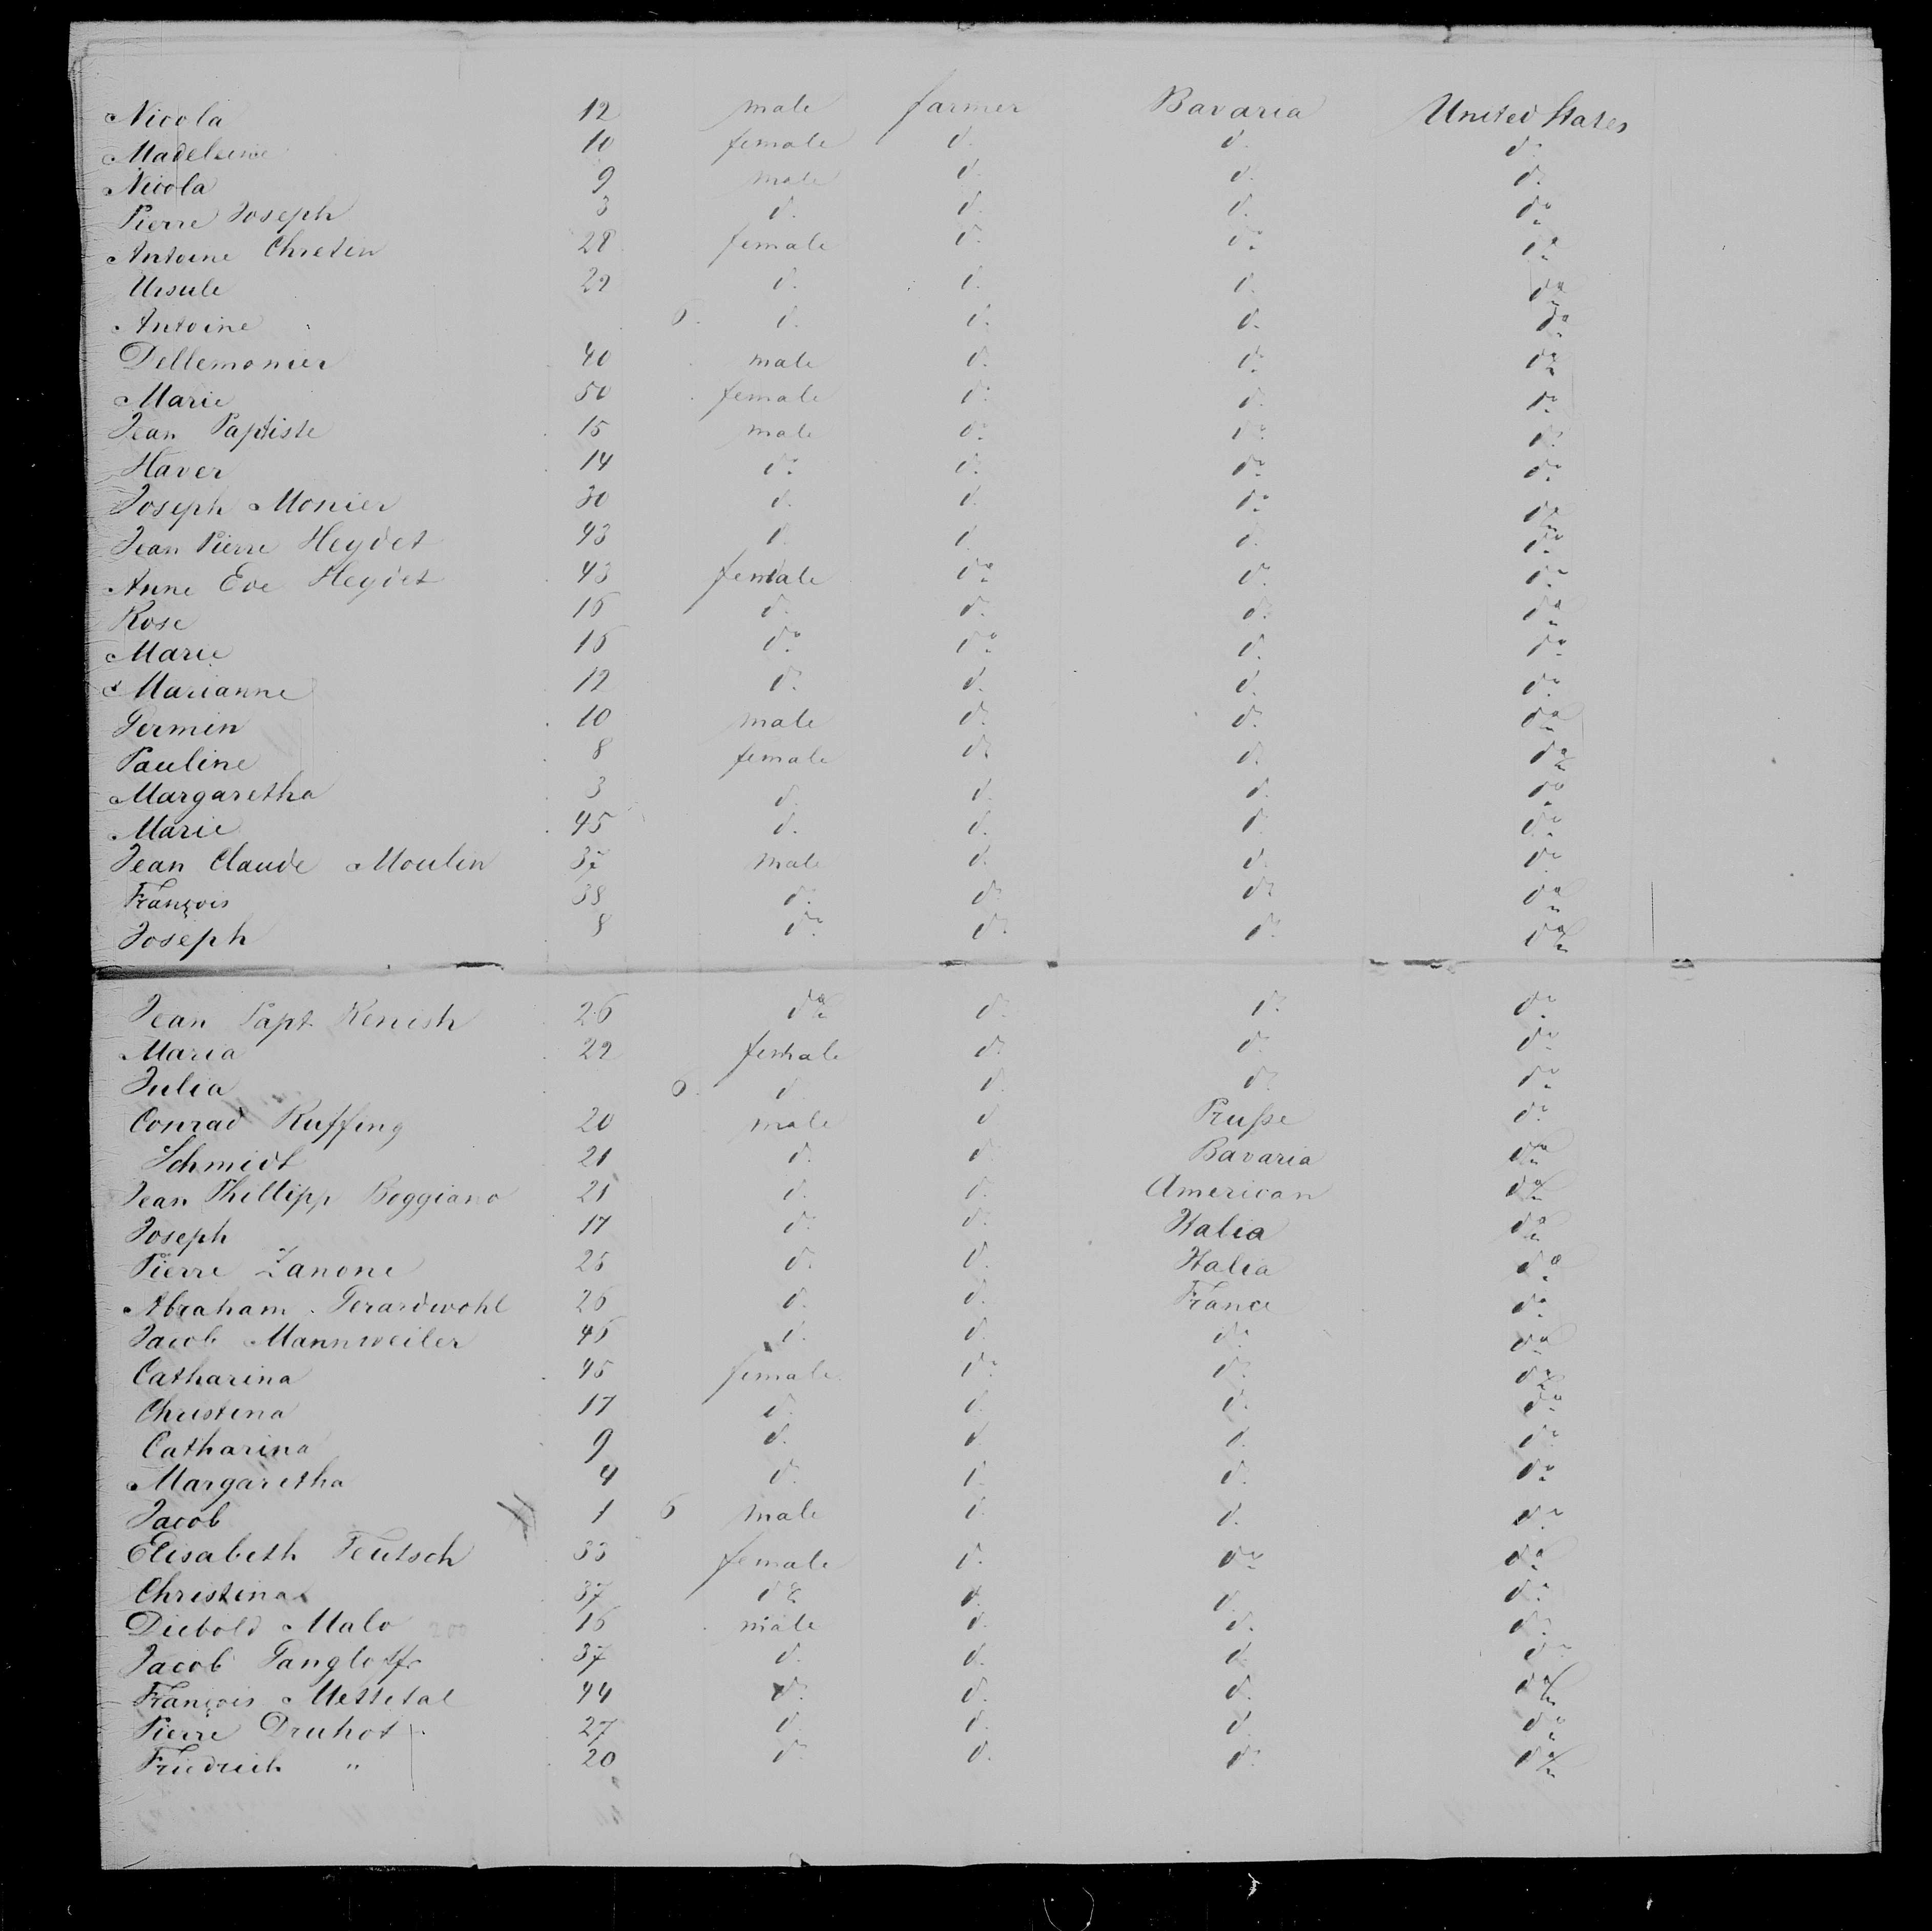 Nicola 12 male farmer Bavaria United States
Madeleine 10 female d. d. do
Nicola 9 male d. d. d.
Pierre Joseph 3 d. d. d. do
Antoine Chretien 28 female d. do do
Ursule 29 d. d. d. do
Antoine 6. d. d. d. do
Dellemonier 40 male d. do do
Marie 50 female do d. do
Jean Paptiste 15 male do do do
Haver 14 do d. do do
Joseph Monier 30 d. d. do do
Jean Pierre Heydet 43 d. d d. do
Anne Eve Heydet 43 female do d. do
Rose 16 d. d. d. do
Marie 15 do do d. do
Marianne 12 d. d. d. do
Germin 10 male d. d. do
Pauline 8 female do d. do
Margaretha 3 d. d. d. do
Marie 45 d. d. d. do
Jean Claude Moulin 37 male d. d. do
François 38 d. do do do
Joseph 8 do do do do
Jean Papt Kenish 26 do do do do
Maria 22 female do do do
Julia 6. d d. do do
Conrad Ruffing 20 male d Prusse do
Schmidt 21 d. d Bavaria do
Jean Phillipp Boggiano 21 d. d. American do
Joseph 17 do d. Italia do
Pierre Zanone 25 d. d. Italia do
Abraham Gerardwohl 26 d. d. France do
Jacob Mannweiler 46 d. d. do do
Catharina 45 female do do do
Christina 17 d. d. d. do
Catharina 9 d. d d. do
Margaretha 4 d. d. d. do
Jacob 1 6 male d. d. do
Elisabeth Teutsch 33 female d. do do
Christina 37 do d. d. do
Diebold Malo 16 male d. d. do
Jacob Gangloff 37 d. d. d. do
François Mettetal 44 d. d. d. do
Pierre Druhot 27 d. d. d. do
Friedrich " 20 do d. do do